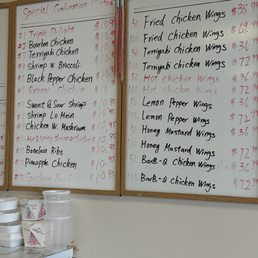 Special Combination Plates
#1 Triple Delight $10.95
#2 Bourbon Chicken $10.95
#3 Terriyaki Chicken $10.95
#4 Shrimp w. Broccoli $10.95
#5 Black Pepper Chicken $10.95
#6 Orange Chicken $10.95
#7 Sweet & Sour Shrimp $10.95
#8 Shrimp Lo Mein $10.95
#9 Chicken w. Mushroom $10.95
Boneless Ribs $10.95
Pineapple Chicken $10.95
Fried Chicken Wings $35.99
Fried Chicken Wings $68.99
Terriyaki Chicken Wings $36
Terriyaki Chicken Wings $72
Hot Chicken Wings $36
Hot Chicken Wings $72
Lemon Pepper Wings $36
Lemon Pepper Wings $72
Honey Mustard Wings $36
Honey Mustard Wings $72
BarB-Q Chicken Wings $36
BarB-Q Chicken Wings $72